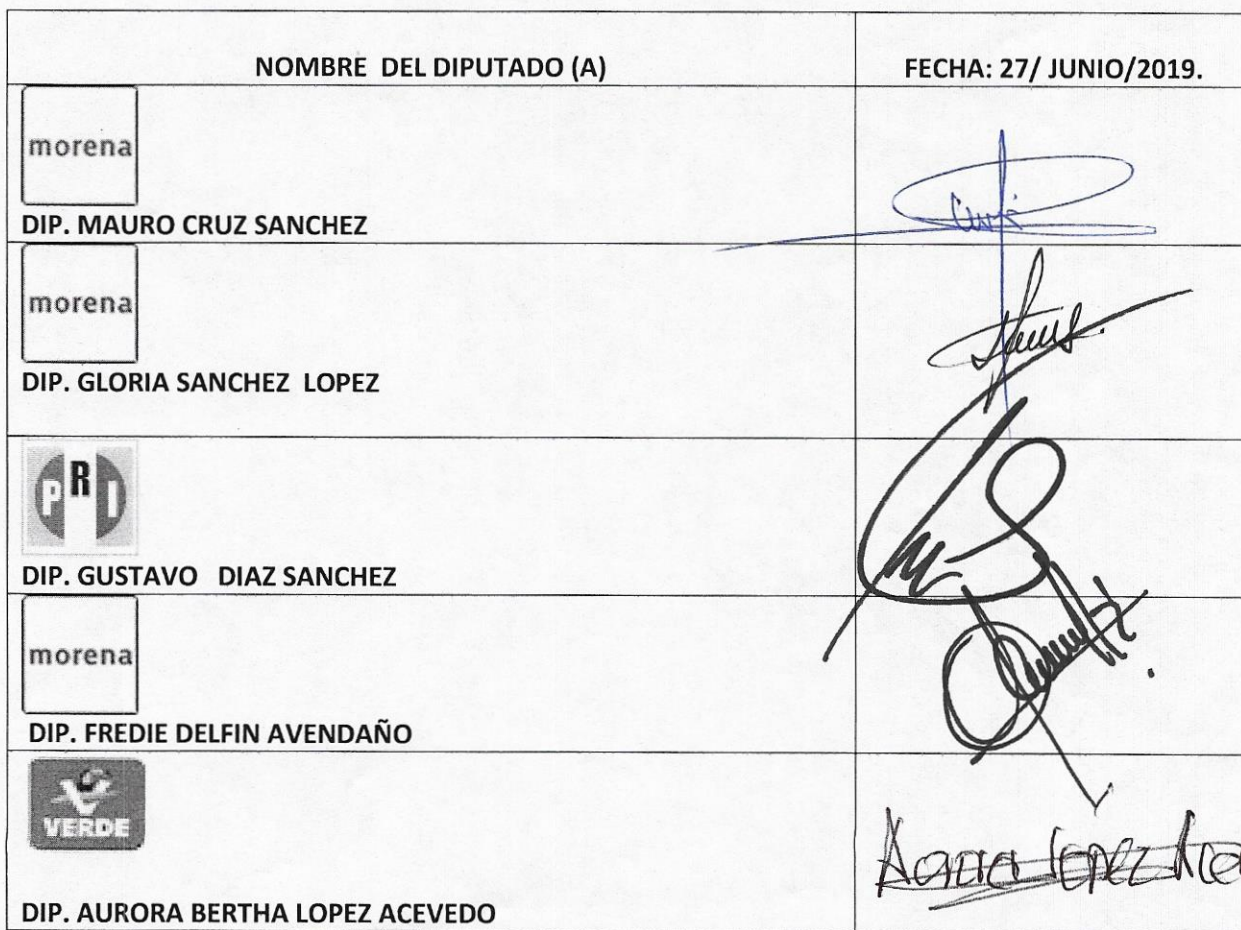 NOMBRE DEL DIPUTADO (A)
FECHA: 27/ JUNIO/2019.
morena
DIP. MAURO CRUZ SANCHEZ
morena
DIP. GLORIA SANCHEZ LOPEZ
PRI
DIP. GUSTAVO DIAZ SANCHEZ
morena
DIP. FREDIE DELFIN AVENDAÑO
VERDE
DIP. AURORA BERTHA LOPEZ ACEVEDO
Lopez